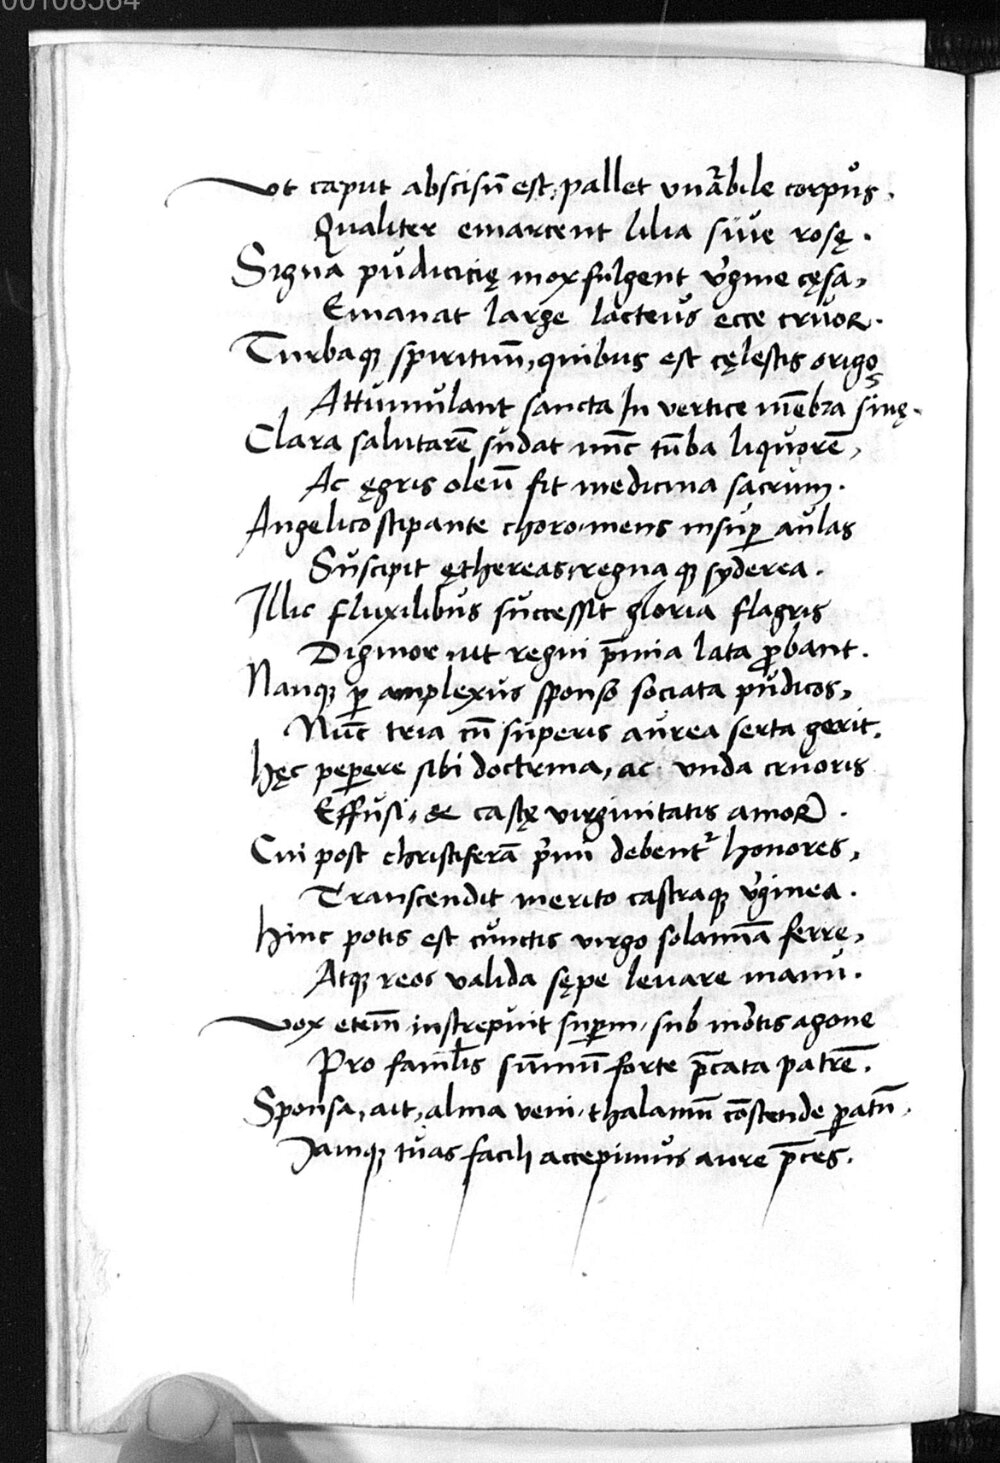 00108564
Vt caput abscisũ est, pallet vnãbile corpůs.
Qualiter emarcent lilia siue rosę.
Signa pudicicię mox fulgent v̓gine cęsa,
Emanat large lacteůs ecce cruor.
Turbaqꝫ spirituũ, quibus est cęlestis origo
Attumulant sancta In vertice mẽbra sinę.
Clara salutarẽ sudat nũc tũba liquorẽ,
Ac ęgris oleũ fit medicina sacrum.
Angelico stipante choro, mens insuꝑ aulas
Suscipit ęthereas, regna qꝫ syderea.
Illic fluxilibůs successit gloria flagris
Dignior, ut regni p̃mia lata ꝓbant.
Nanqꝫ ꝑ amplexůs sponso sociata půdicos,
Nũc tria cũ superis aurea serta gerit.
Hęc peꝑere sibi doctrina, ac vnda cruoris
Effusi, de castę virginitatis amor.
Cui post christiferã p̓mi debentᷣ honores,
Transcendit merito castraqꝫ v̓ginea.
Hinc potis est cůnctis virgo solamiña ferre,
Atqꝫ reos valida sępe leuare manu.
Vox eteim̃ instrepuit suꝑni, sub mo̓tis agone
Pro famĩlis sũmũ forte p̃cata patrẽ.
Sponsa, ait, alma veni, thalamũ cõscende ꝑatũ,
Iamqꝫ tůas facili accepimůs aure p̃ces.